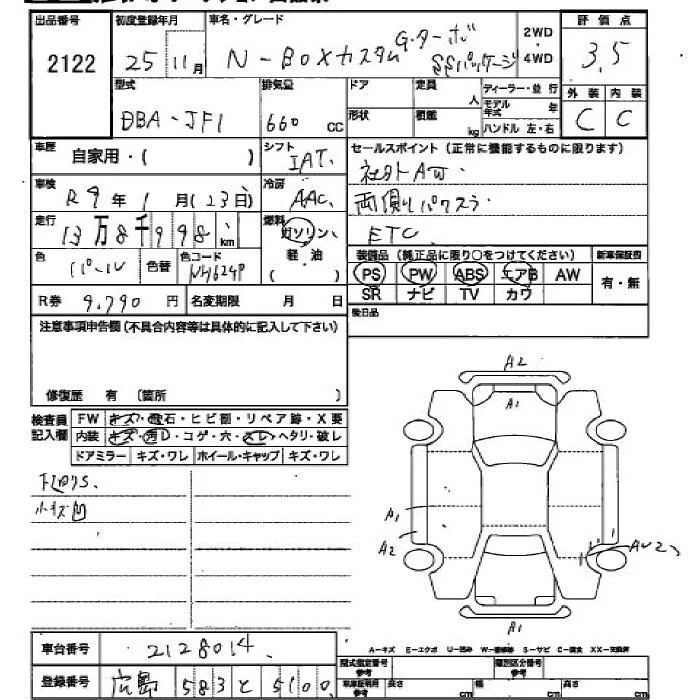 出品番号 初度登録年月 車名・グレード 2WD 4WD 評価点
2122 25年 11月 N-BOXカスタム G.ターボ SSパッケージ 3.5
型式 排気量 ドア 定員 人 ディーラー・並行 外装 内装
DBA-JF1 660 cc 形状 積載 kg モデル年式 年 ハンドル 左・右 C C
車歴 自家用・( ) シフト IAT. セールスポイント (正常に機能するものに限ります)
社外AW.
車検 R9年1月(23日) 冷房 AAC. 両側パワスラ
走行 13万8千998 km 燃料 ガソリン、軽・油 ( ) ETC
色 パール 色替 色コード NH624P
装備品 (純正品に限り○をつけてください) 新車保証書
PS PW ABS エアB AW 有・無
SR ナビ TV カワ
R券 9,790円 名変期限 月 日 後日品
注意事項申告欄(不具合内容等は具体的に記入して下さい)
修復歴 有 (箇所 )
検査員記入欄 FW キズ・飛石・ヒビ割・リペア跡・X要
内装 キズ・汚レ・コゲ・穴・スレ・ヘタリ・破レ
ドアミラー キズ・ワレ ホイール・キャップ キズ・ワレ
下回りS.
小キズ凹
A2
A1
A1
A2
A1
A-キズ E-エクボ U-凹み W-補修跡 S-サビ C-腐食 XX-交換済
車台番号 2128014.
型式指定番号 類別区分番号
登録番号 広島 583 と 5100
長さ cm 幅 cm 高さ cm